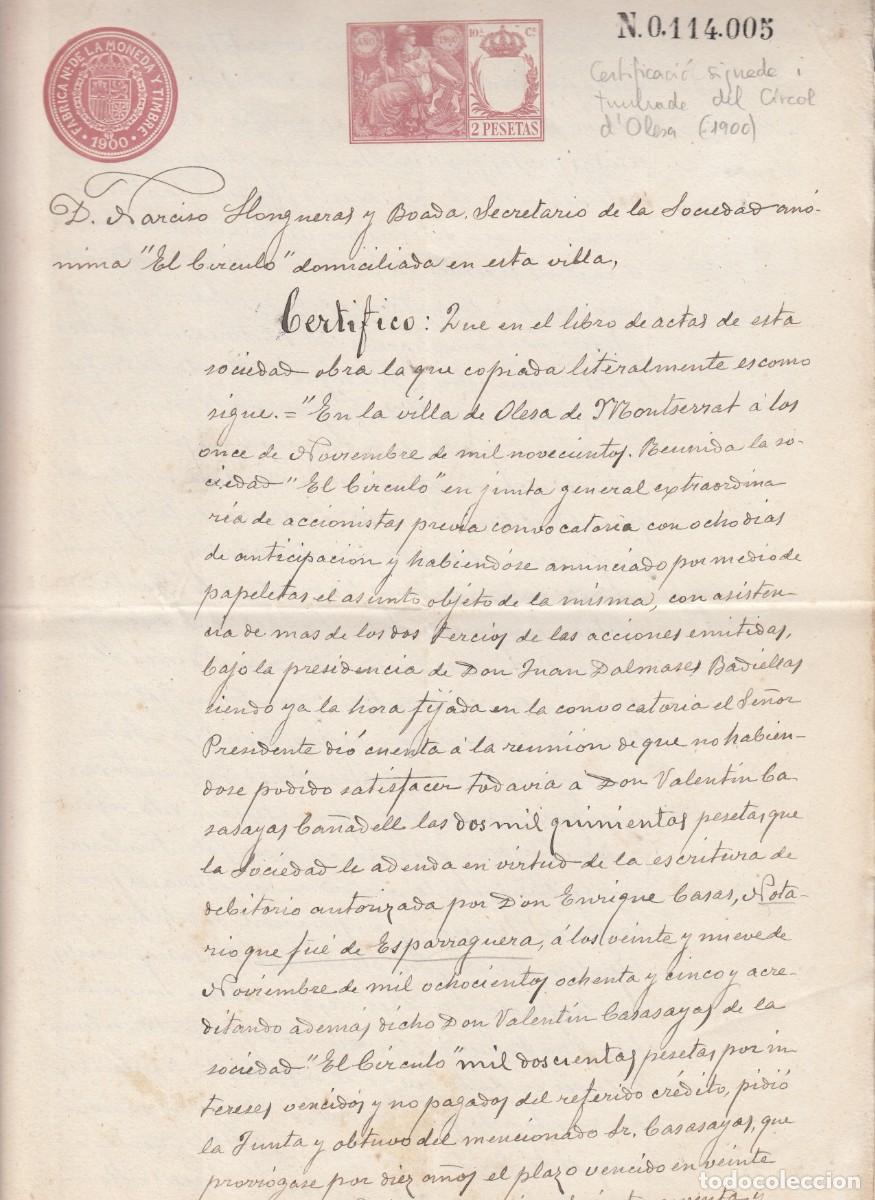 FABRICA Nal DE LA MONEDA Y TIMBRE
1900
AÑO 1900
10.ª Cª
2 PESETAS
N.0.114.005
Certificació signada i
timbrada del Círcol
d'Olesa (1900)
D. Narciso Llongueras y Boada, Secretario de la Sociedad anó-
nima "El Círculo" domiciliada en esta villa,
Certifico: Que en el libro de actas de esta
sociedad obra la que copiada literalmente es como
sigue. = "En la villa de Olesa de Montserrat á los
once de Noviembre de mil novecientos. Reunida la so-
ciedad "El Círculo" en junta general extraordina
ria de accionistas previa convocatoria con ocho dias
de anticipación y habiéndose anunciado por medio de
papeletas el asunto objeto de la misma, con asisten-
cia de mas de los dos tercios de las acciones emitidas,
bajo la presidencia de Don Juan Dalmases Badiellas
siendo ya la hora fijada en la convocatoria el Señor
Presidente dió cuenta á la reunión de que no habien-
dose podido satisfacer todavia á Don Valentín Ca
sasayas Cañadell las dos mil quinientas pesetas que
la Sociedad le adenda en virtud de la escritura de
debitorio autorizada por Don Enrique Casas, Nota-
rio que fué de Esparraguera, á los veinte y nueve de
Noviembre de mil ochocientos ochenta y cinco y acre-
ditando además dicho Don Valentín Casasayas de la
sociedad "El Círculo" mil doscientas pesetas por in
tereses vencidos y no pagados del referido crédito, pidió
la Junta y obtuvo del mencionado Sr. Casasayas, que
prorrógase por diez años el plazo vencido en veinte
todocoleccion